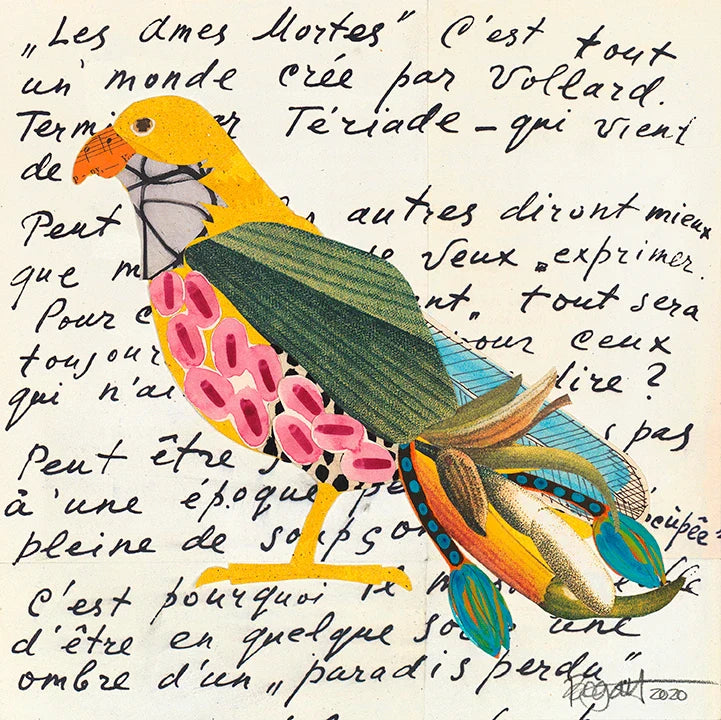 „Les Ames Mortes" C'est tout
un monde crée par Vollard.
Term er Tériade – qui vient
de
Peut autres diront mieux
que m je veux „exprimer.
Pour c ent„ tout sera
toujour pour ceux
qui n'a dire ?
s pas
Peut être
à une époque pe cupée
pleine de soupço
C'est pourquoi il m
d'être en quelque so une
ombre d'un „paradis perdu"
2020